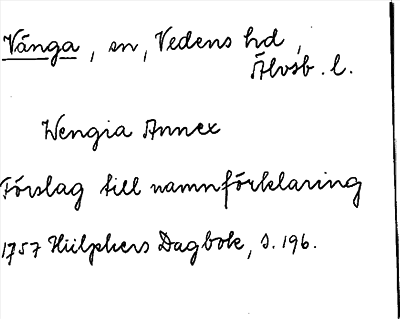 Vånga, sn, Vedens hd,
Älvsb. l.
Wengia Annex
Förslag till namnförklaring
1757 Hülphers Dagbok, s. 196.